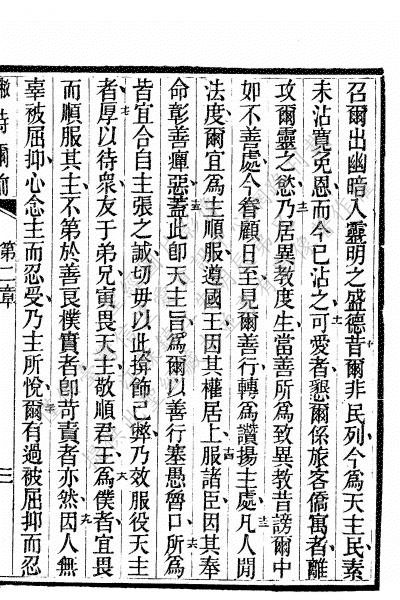 召爾出幽暗入靈明之盛德昔爾非民列今爲天主民素
未沾寬免恩而今已沾之可愛者懇爾係旅客僑寓者離
攻爾靈之慾乃居異教度生當善所爲致異教昔謗爾中
如不善處今眷顧日至見爾善行轉爲讚揚主處凡人間
法度爾宜爲主順服遵國王因其權居上服諸臣因其奉
命彰善癉惡蓋此卽天主旨爲爾以善行塞愚魯口所爲
皆宜合自主張之誠切毋以此揜飾己弊乃效服役天主
者厚以待衆友于弟兄寅畏天主敬順君王爲僕者宜畏
而順服其主不第於善良樸實者卽苛責者亦然因人無
辜被屈抑心念主而忍受乃主所悅爾有過被屈抑而忍
第二章
三
十
十一
十二
十三
十四
十五
十六
十七
十八
十九
二十